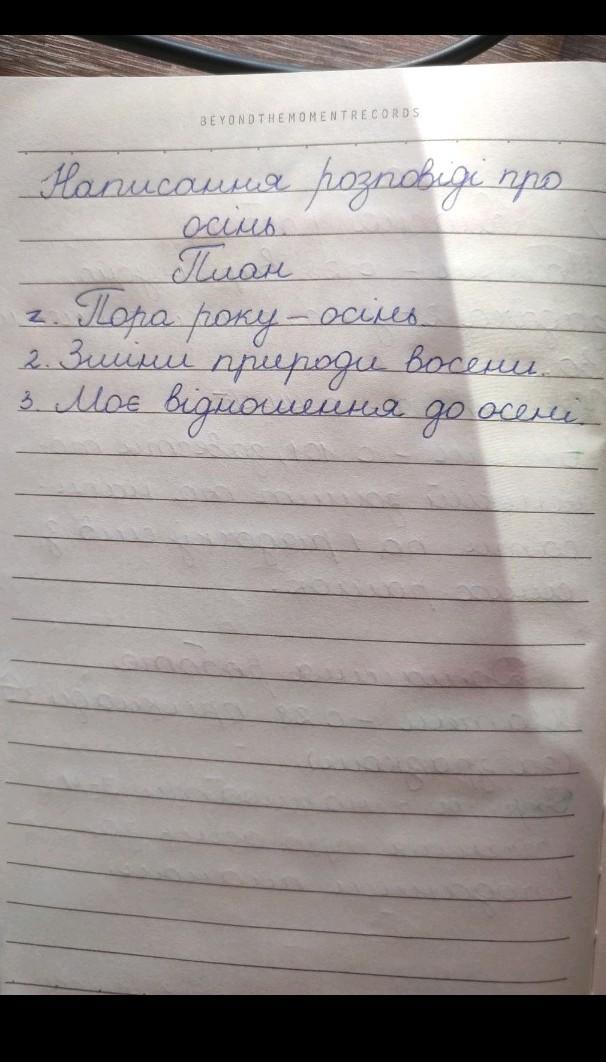 BEYONDTHEMOMENTRECORDS
Написання розповіді про
осінь.
План
1. Пора року – осінь.
2. Зміни природи восени.
3. Моє відношення до осені.